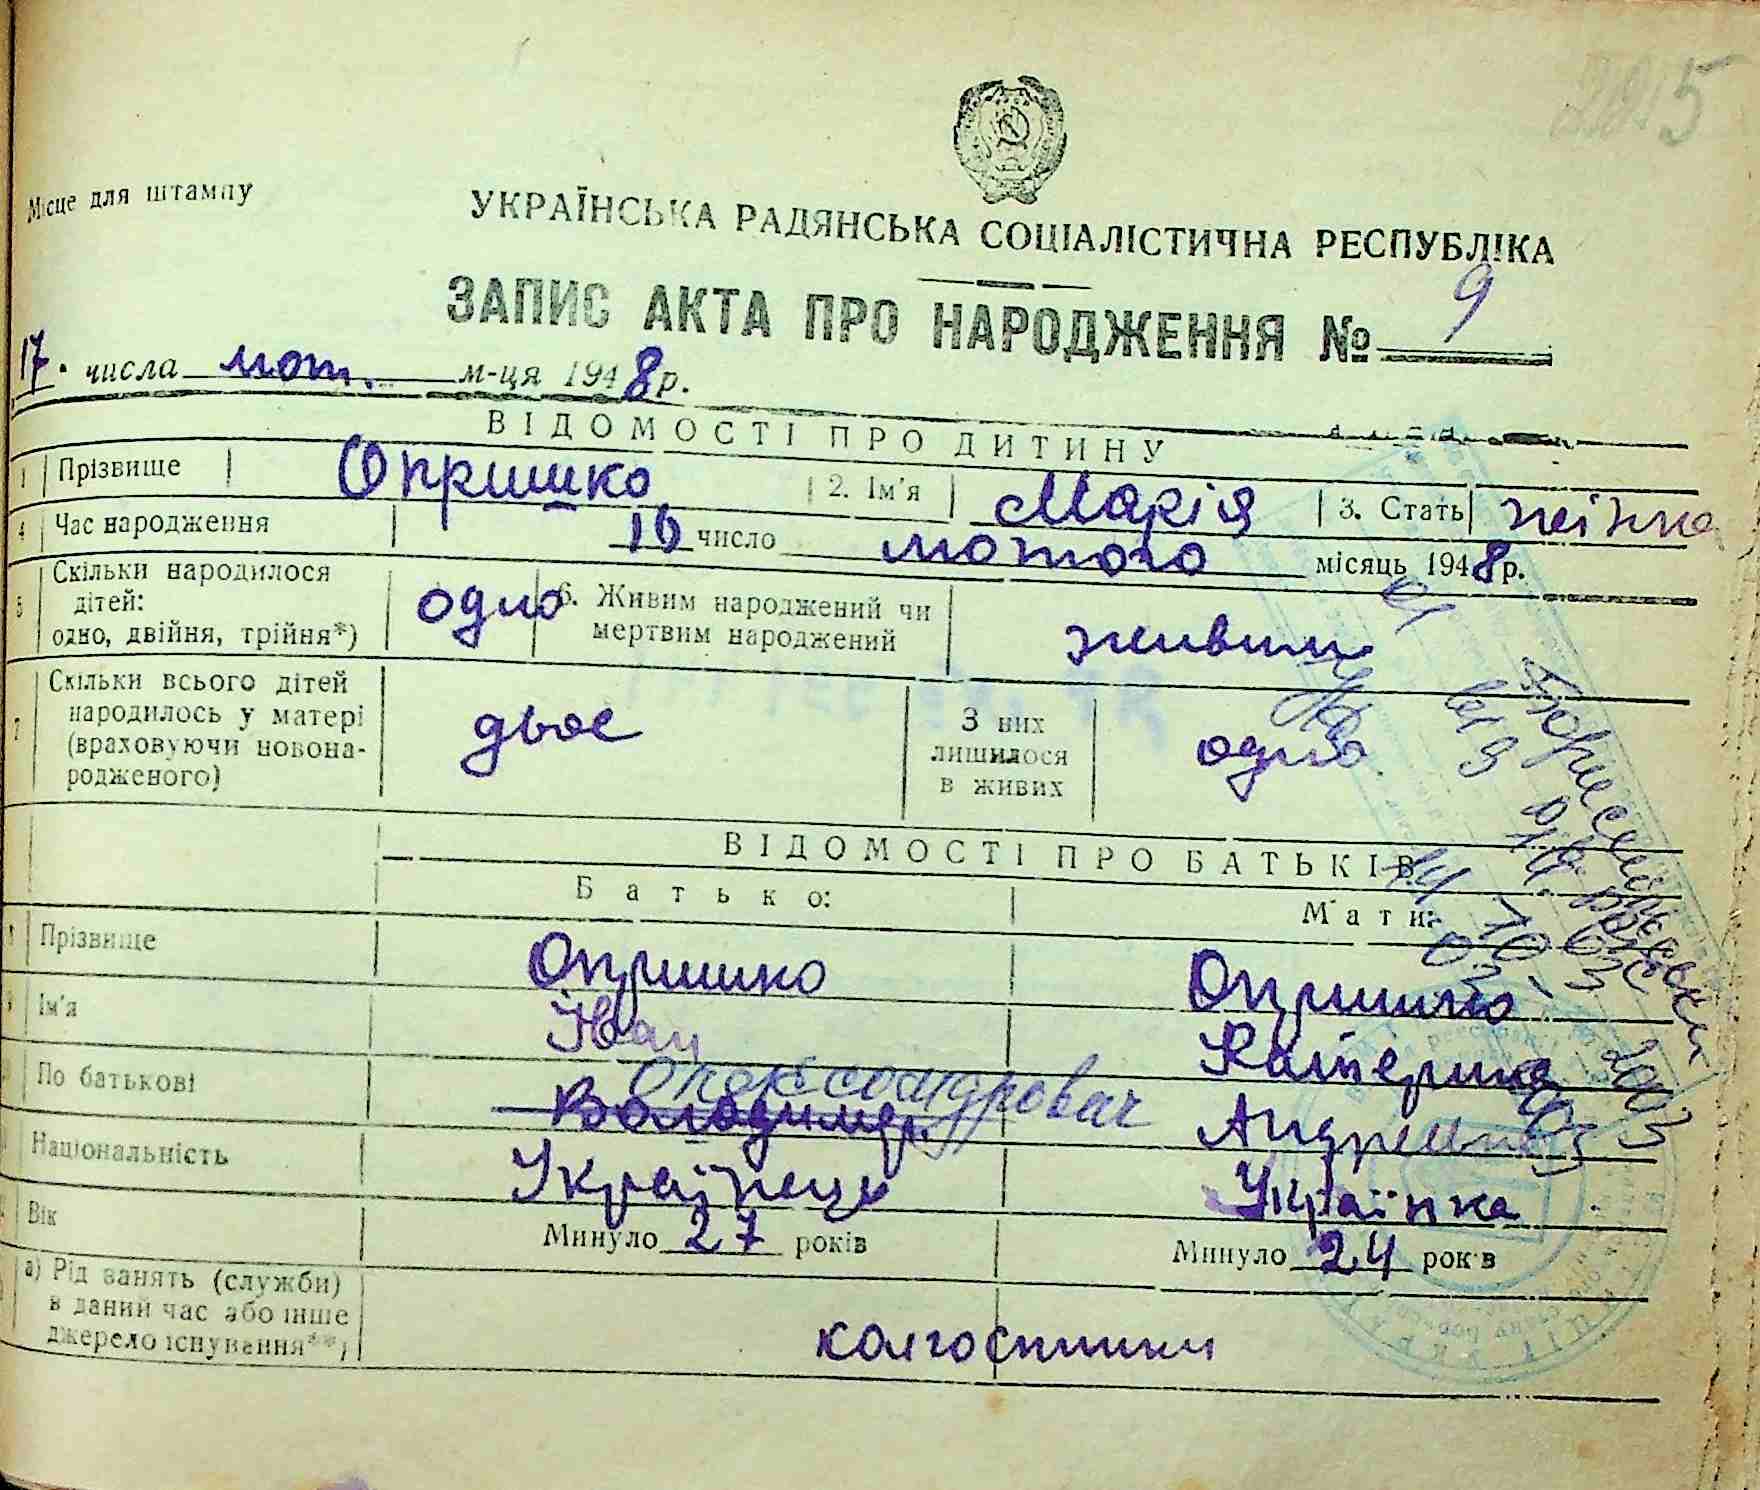 5
Місце для штампу
УКРАЇНСЬКА РАДЯНСЬКА СОЦІАЛІСТИЧНА РЕСПУБЛІКА
ЗАПИС АКТА ПРО НАРОДЖЕННЯ № 9
17. числа лют. м-ця 1948 р.
ВІДОМОСТІ ПРО ДИТИНУ
1 Прізвище Опришко 2. Ім'я Марія 3. Стать жінка
4 Час народження 10 число лютого місяць 1948 р.
5 Скільки народилося дітей: одно, двійня, трійня*) одно 6. Живим народжений чи мертвим народжений живим
7 Скільки всього дітей народилось у матері (враховуючи новонародженого) двоє З них лишилося в живих одно
ВІДОМОСТІ ПРО БАТЬКІВ
Батько: Мати:
Прізвище Опришко Опришко
Ім'я Іван Катерина
По батькові Володимир Олександрович
Національність Українець Українка
Вік Минуло 27 років Минуло 24 рок в
а) Рід занять (служби) в даний час або інше джерело існування**) колгоспники